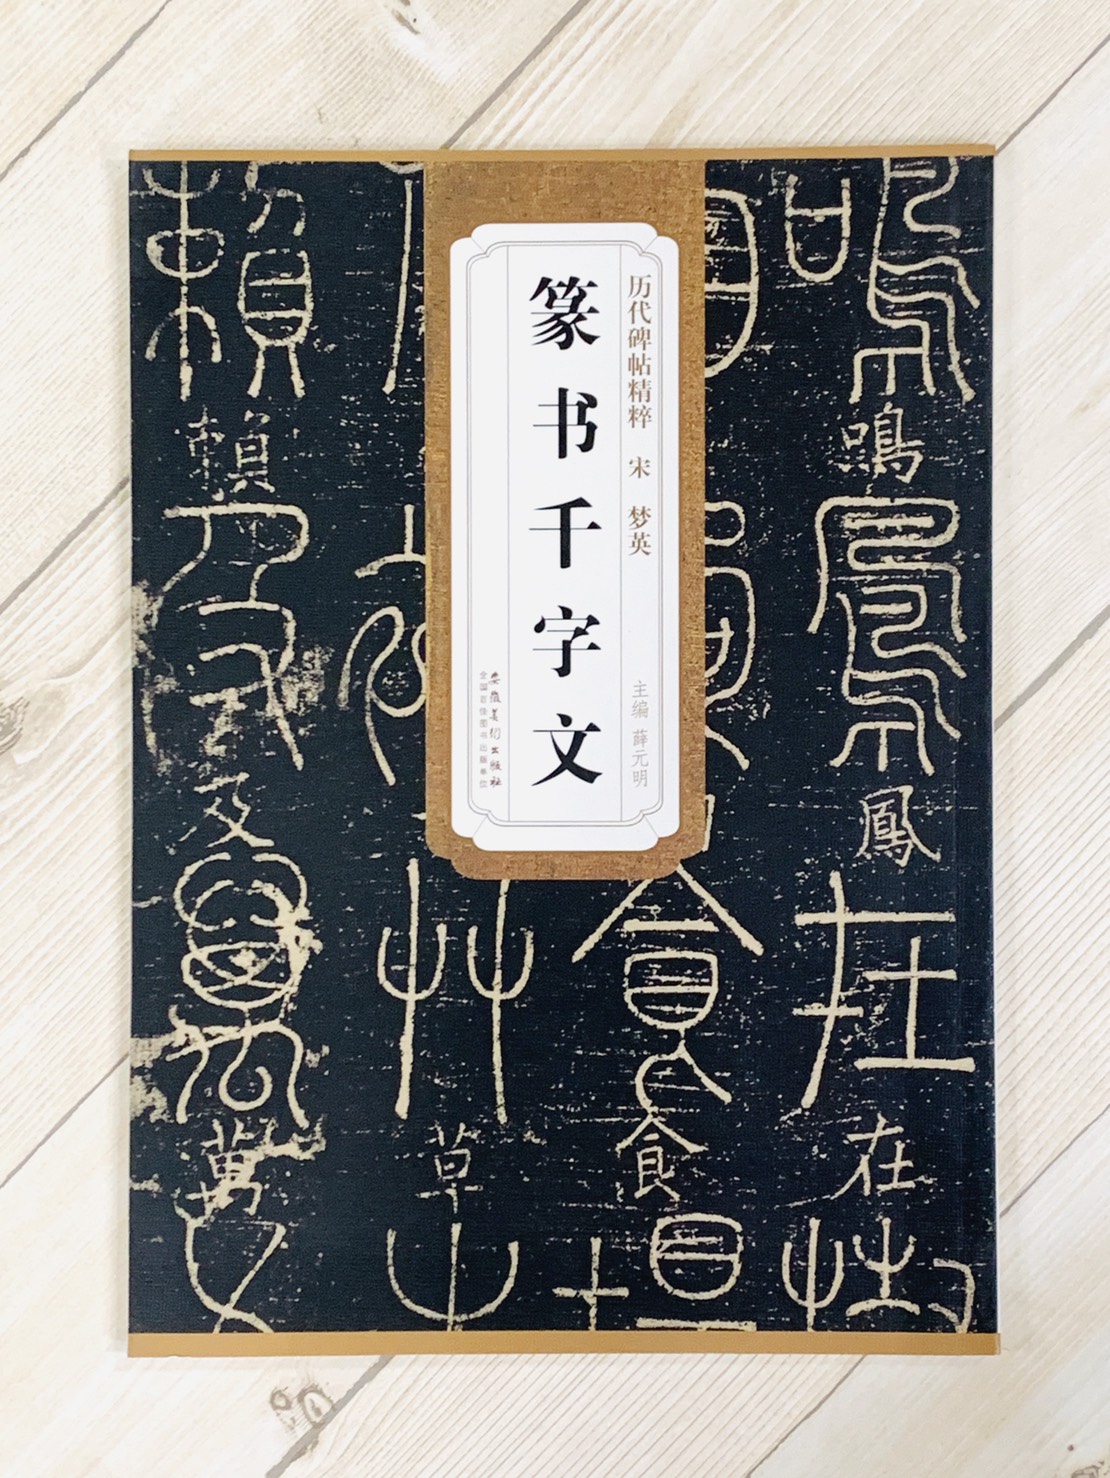 历代碑帖精粹 宋 梦英
篆书千字文
主编 薛元明
安徽美术出版社
全国百佳图书出版单位
鳴
鳳
在
食
草
賴
及
萬